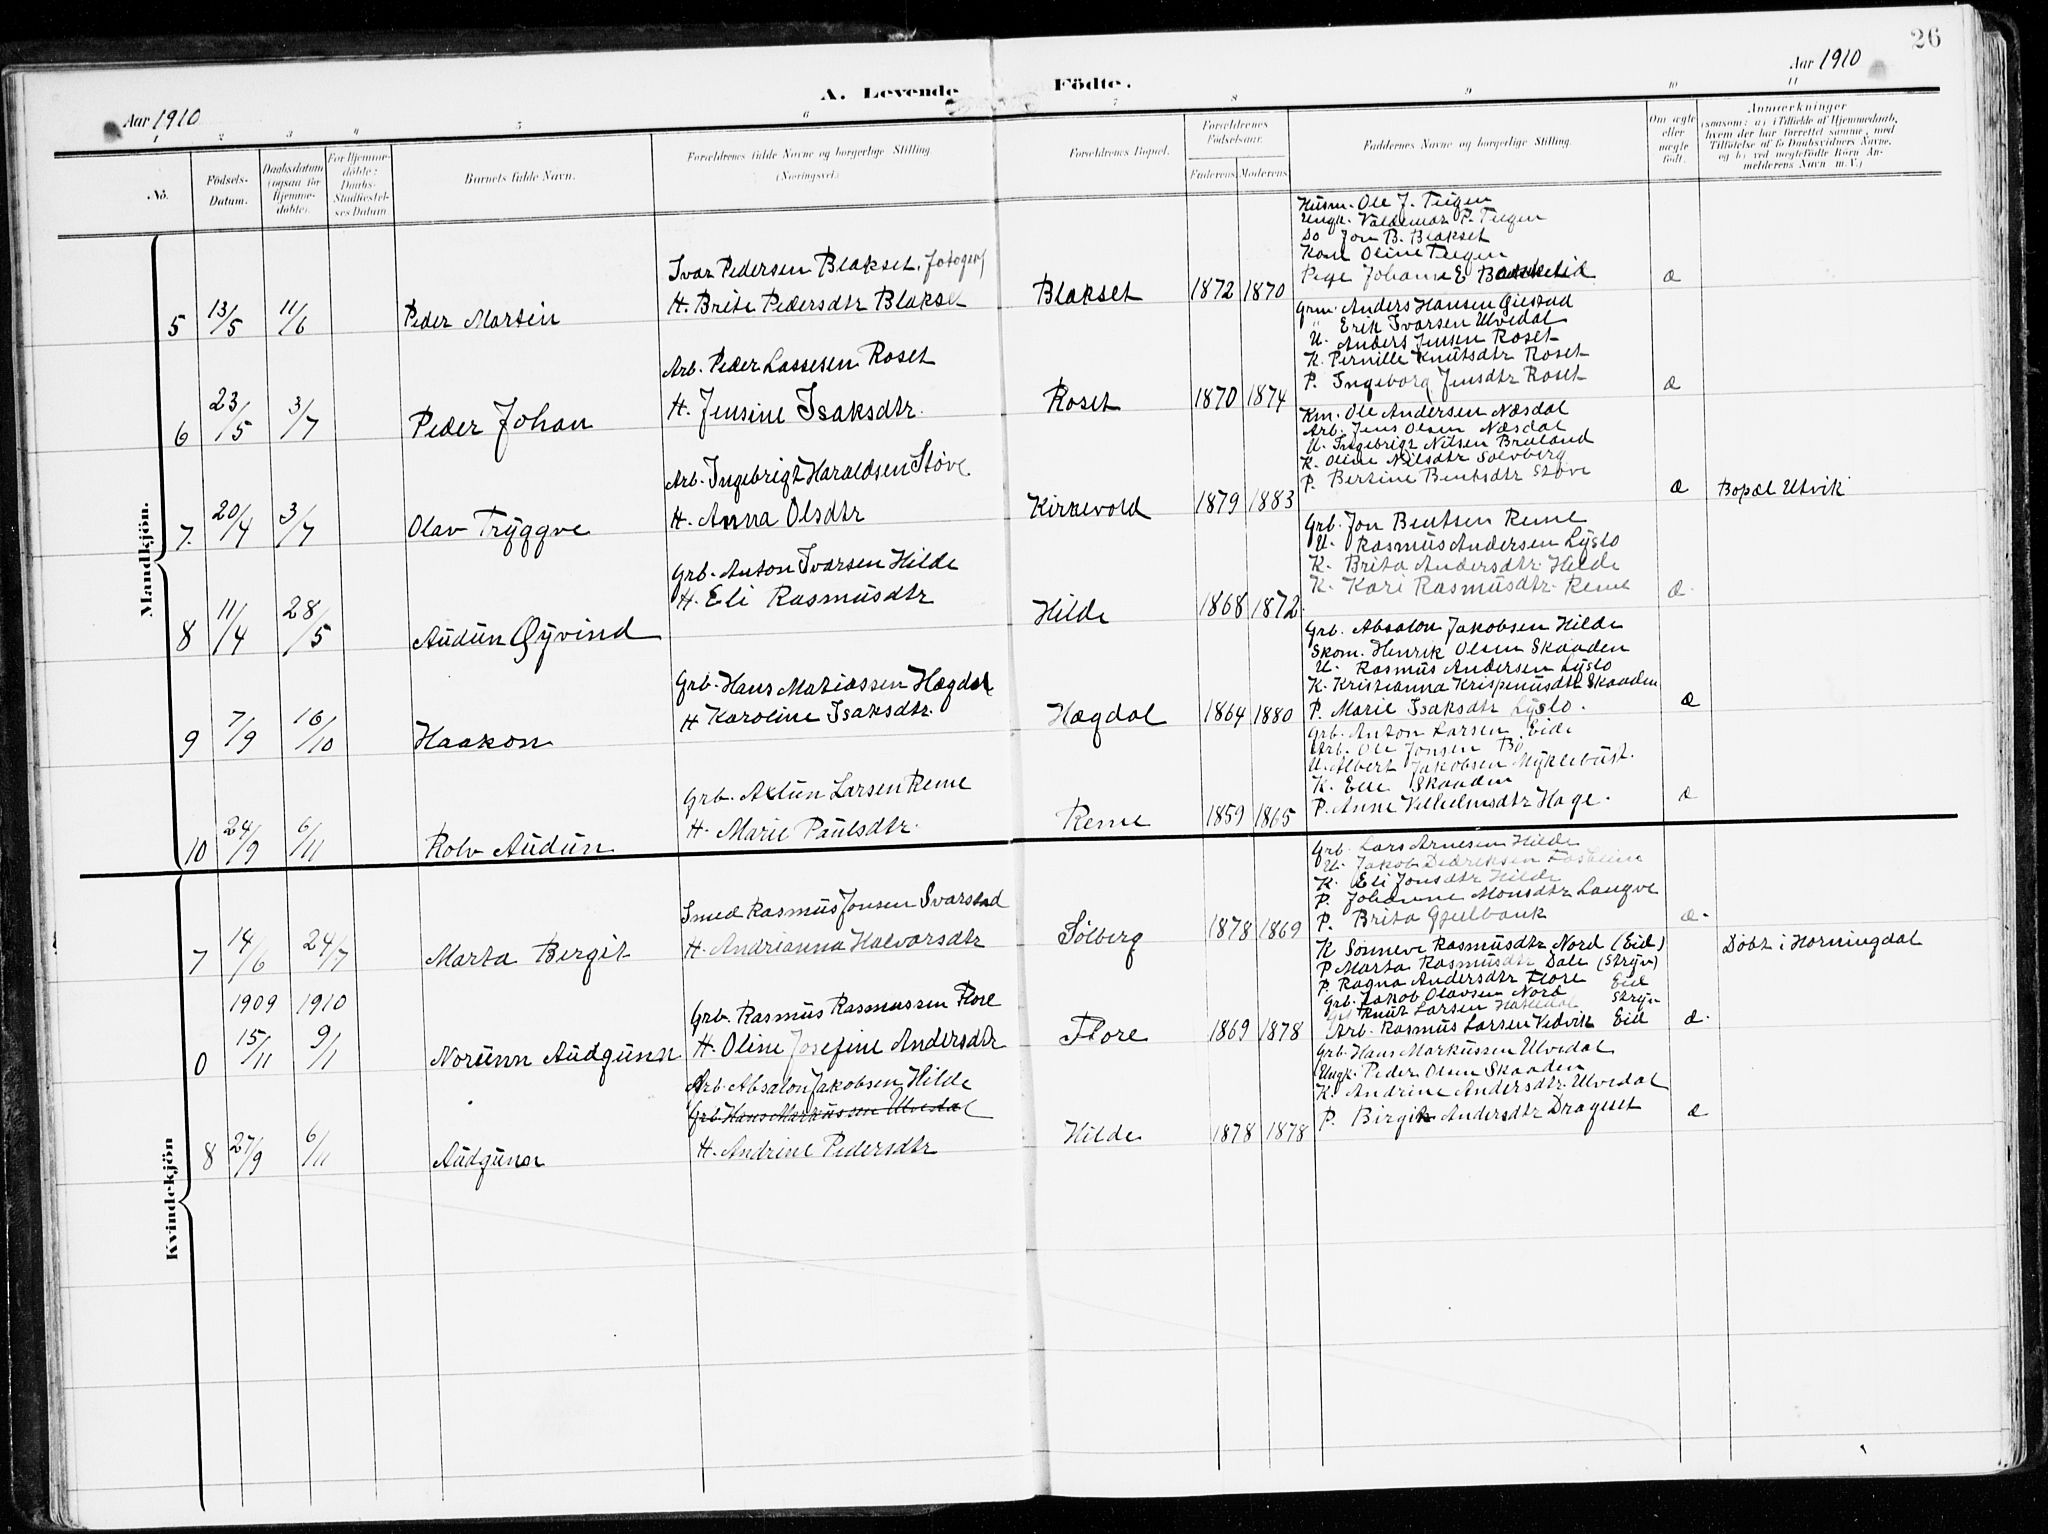 26
Aar 1910
A. Levende Födte.
Aar 1910
1 2 3 4 5 6 7 8 9 10 11
No.
Födsels-Datum.
Daabsdatum (ogsaa for Hjemmedöbte).
For Hjemmedöbte: Daabs-Stadfæstelses Datum.
Barnets fulde Navn.
Forældrenes fulde Navne og borgerlige Stilling
(Næringsvei.)
Forældrenes Bopæl.
Forældrenes Födselsaar.
Faderens. Moderens.
Faddernes Navne og borgerlige Stilling.
Om ægte eller uægte födt.
Anmærkninger
(saasom: a) i Tilfælde af Hjemmedaab, hvem der har forrettet samme, med Tilföielse af to Daabsvidners Navne, og b) ved uægtefödte Börn Anmelderens Navn m. V.)
Mandkjön.
5 13/5 11/6 Peder Martin
Ivar Pedersen Blakset, fotograf
H. Brite Pedersdtr Blakset
Blakset 1872 1870
Husm. Ole J. Teigen
Ungk. Valdemar P. Teigen
Do Jon B. Blakset
Kone Oline Teigen
Pige Johanne E
æ
6 23/5 3/7 Peder Johan
Arb. Peder Lassesen Roset
H. Jensine Isaksdtr.
Roset 1870 1874
Grm. Anders Hansen Gjestad
" Erik Ivarsen Ulvedal
U. Anders Jensen Roset
K. Pernille Knutsdtr Roset
P. Ingeborg Jensdtr Roset
æ
7. 20/4 3/7 Olav Tryggve
Arb. Ingebrigt Haraldsen Støve
H. Anna Olsdtr
Kirkevold 1879 1883
Km. Ole Andersen Næsdal
Arb. Jens Olsen Næsdal
U. Ingebrigt Nilsen Bruland
K. Oline Nilsdtr Solvberg
P. Bertine Bentsdtr Støve
æ Bopæl Utvik
8 11/4 28/5 Audun Øyvind
Grb. Anton Ivarsen Hilde
H. Eli Rasmusdtr
Hilde 1868 1872
Grb. Jon Bentsen Reme
U. Rasmus Andersen Lyslo
K. Brita Andersdtr Hilde
K. Kari Rasmusdtr Reme
æ
9 7/9 16/10 Haakon
Grb. Hans Matiassen Hægdal
H Karoline Isaksdtr.
Hægdal 1864 1880
Grb. Absalon Jakobsen Hilde
Skom. Henrik Olsen Skaaden
U. Rasmus Andersen Lyslo
K. Kristianna Krispinusdtr Skaaden
P. Marie Isaksdtr Lyslo.
æ
10 24/9 6/11 Rolv Audun
Grb. Axtun Larsen Reme
H. Marie Paulsdtr.
Reme 1859 1865
Grb. Anton Larsen Eide
Arb. Ole Jonsen Bö
U. Albert Jakobsen Myklebust.
K. Elle Skaaden
P. Anne Vilhelmsdtr Hage.
æ
Kvindekjön
7 14/6 24/7 Marta Bergit
Smed Rasmus Jonsen Svarstad
H. Andrianna Halvarsdtr
Sølberg 1878 1869
Grb. Lars Arnesen Hilde
U. Jakob Didriksen
K. Eli Jonsdtr Hilde
P. Johanne Monsdtr Langve
P. Brita Gjelbank
æ
1909 1910
0 15/11 9/1 Norunn Audgunn
Grb. Rasmus Rasmussen Flore
H. Oline Josefine Andersdtr
Flore 1869 1878
K Sønneve Rasmusdtr Nord (Eid)
P Marta Rasmusdtr Dale (Stryn)
P. Ragna Andersdtr Flore Eid
Grb. Jakob Olavsen Nord
Grb Knut Larsen Stryn
Arb. Rasmus Larsen Vedvik Eid
æ
Döbt i Horningdal
8 27/9 6/11 Audgunn
Arb. Absalon Jakobsen Hilde
Grb. Hans Markussen Ulvedal
H. Andrine Pedersdtr
Hilde 1878 1878
Grb. Hans Markussen Ulvedal
Ungk. Peder Olsen Skaaden
K. Andrine Andersdtr. Ulvedal
P. Birgit Andersdtr Drageset
æ